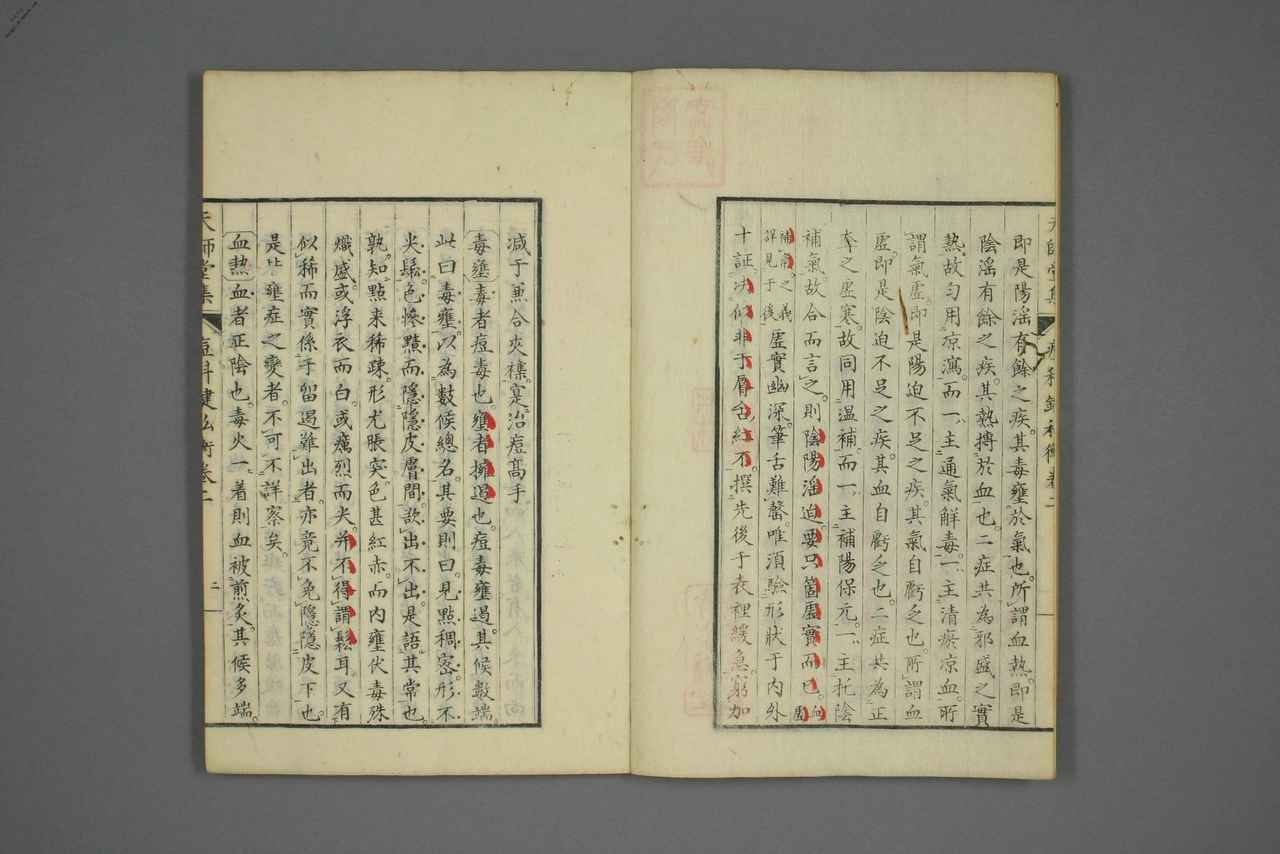 即是陽滛有餘之疾。其毒壅於氣也。所謂血熱。即是
陰滛有餘之疾。其熱搏於血也。二症共為邪盛之實
熱。故勻用凉瀉。而一主通氣解毒。一主清瘀凉血。所
謂氣虛。即是陽迫不足之疾。其氣自虧乏也。所謂血
虛。即是陰迫不足之疾。其血自虧乏也。二症共為正
奪之虛寒。故同用温補。而一主補陽保元。一主托陰
補氣。故合而言之。則陰陽滛迫。要只箇虛實而已。血虛
補氣。之義詳見于後
虛實幽深。筆舌難罄。唯湏驗形狀于内外
十証。決似非于唇舌紅不。撰先後于表裡緩急。窮加
天師堂集
痘科鍵私衡卷二
減于兼合夾襍。寔治痘高手。
毒壅 毒者痘毒也。壅者擁遏也。痘毒壅遏。其候數端。
此曰毒壅。以為數候總名。其要則曰。見點稠密。形不
尖鬆。色慘黯而隱隱皮膚間。欲出不出。是語其常也。
孰知點来稀踈。形尤脹突。色甚紅赤。而内壅伏毒殊
熾盛。或浮衣而白。或癘烈而尖。并不得謂鬆耳。又有
似稀而實係于留遏難出者。亦竟不免隱隱皮下也。
是毒壅症之變者。不可不詳察矣。
血熱 血者正陰也。毒火一着則血被煎炙。其候多端。
天師堂集
痘科鍵私衡卷二
二